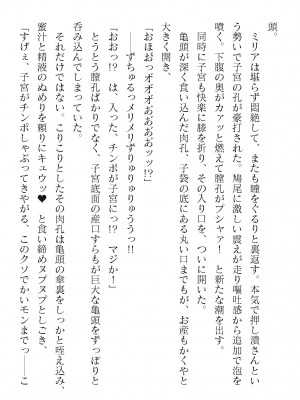 頭。
　ミリアは堪らず悶絶して、またも瞳をぐるりと裏返す。本気で押し潰さんとい
う勢いで子宮の孔が豪打された。鳩尾に激しい震えが走り嘔吐感から追加で泡を
噴く。下腹の奥がカァッと燃えて膣孔がプシャァ！　と新たな潮を出す。
　同時に子宮も快楽に膝を折り、その入り口を、ついに開いた。
「おほおっオオオオおおおおッッ!?」
　亀頭が深く食い込んだ肉孔、子袋の底にある丸い口までもが、お産もかくやと
大きく開き、
　――ずちゅるっメリメリずりゅりゅりゅうぅっ!!
「おおっ!?　は、入った、チンポが子宮にっ!?　マジか！」
　とうとう膣孔ばかりでなく、子宮底面の産口すらもが巨大な亀頭をずっぽりと
呑み込んでしまっていた。
　それだけではない。こりこりとしたその肉孔は亀頭の傘裏をしっかと咥え込み、
蜜汁と精液のぬめりを頼りにキュウッ♥　と食い締めヌプヌプとしごき、
「すげぇ、子宮がチンポしゃぶってきやがる、このクソでかいモンまでっ――こ